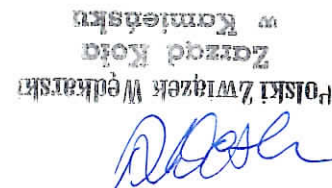 Polski Związek Wędkarski
Zarząd Koła
w Kamieńsku